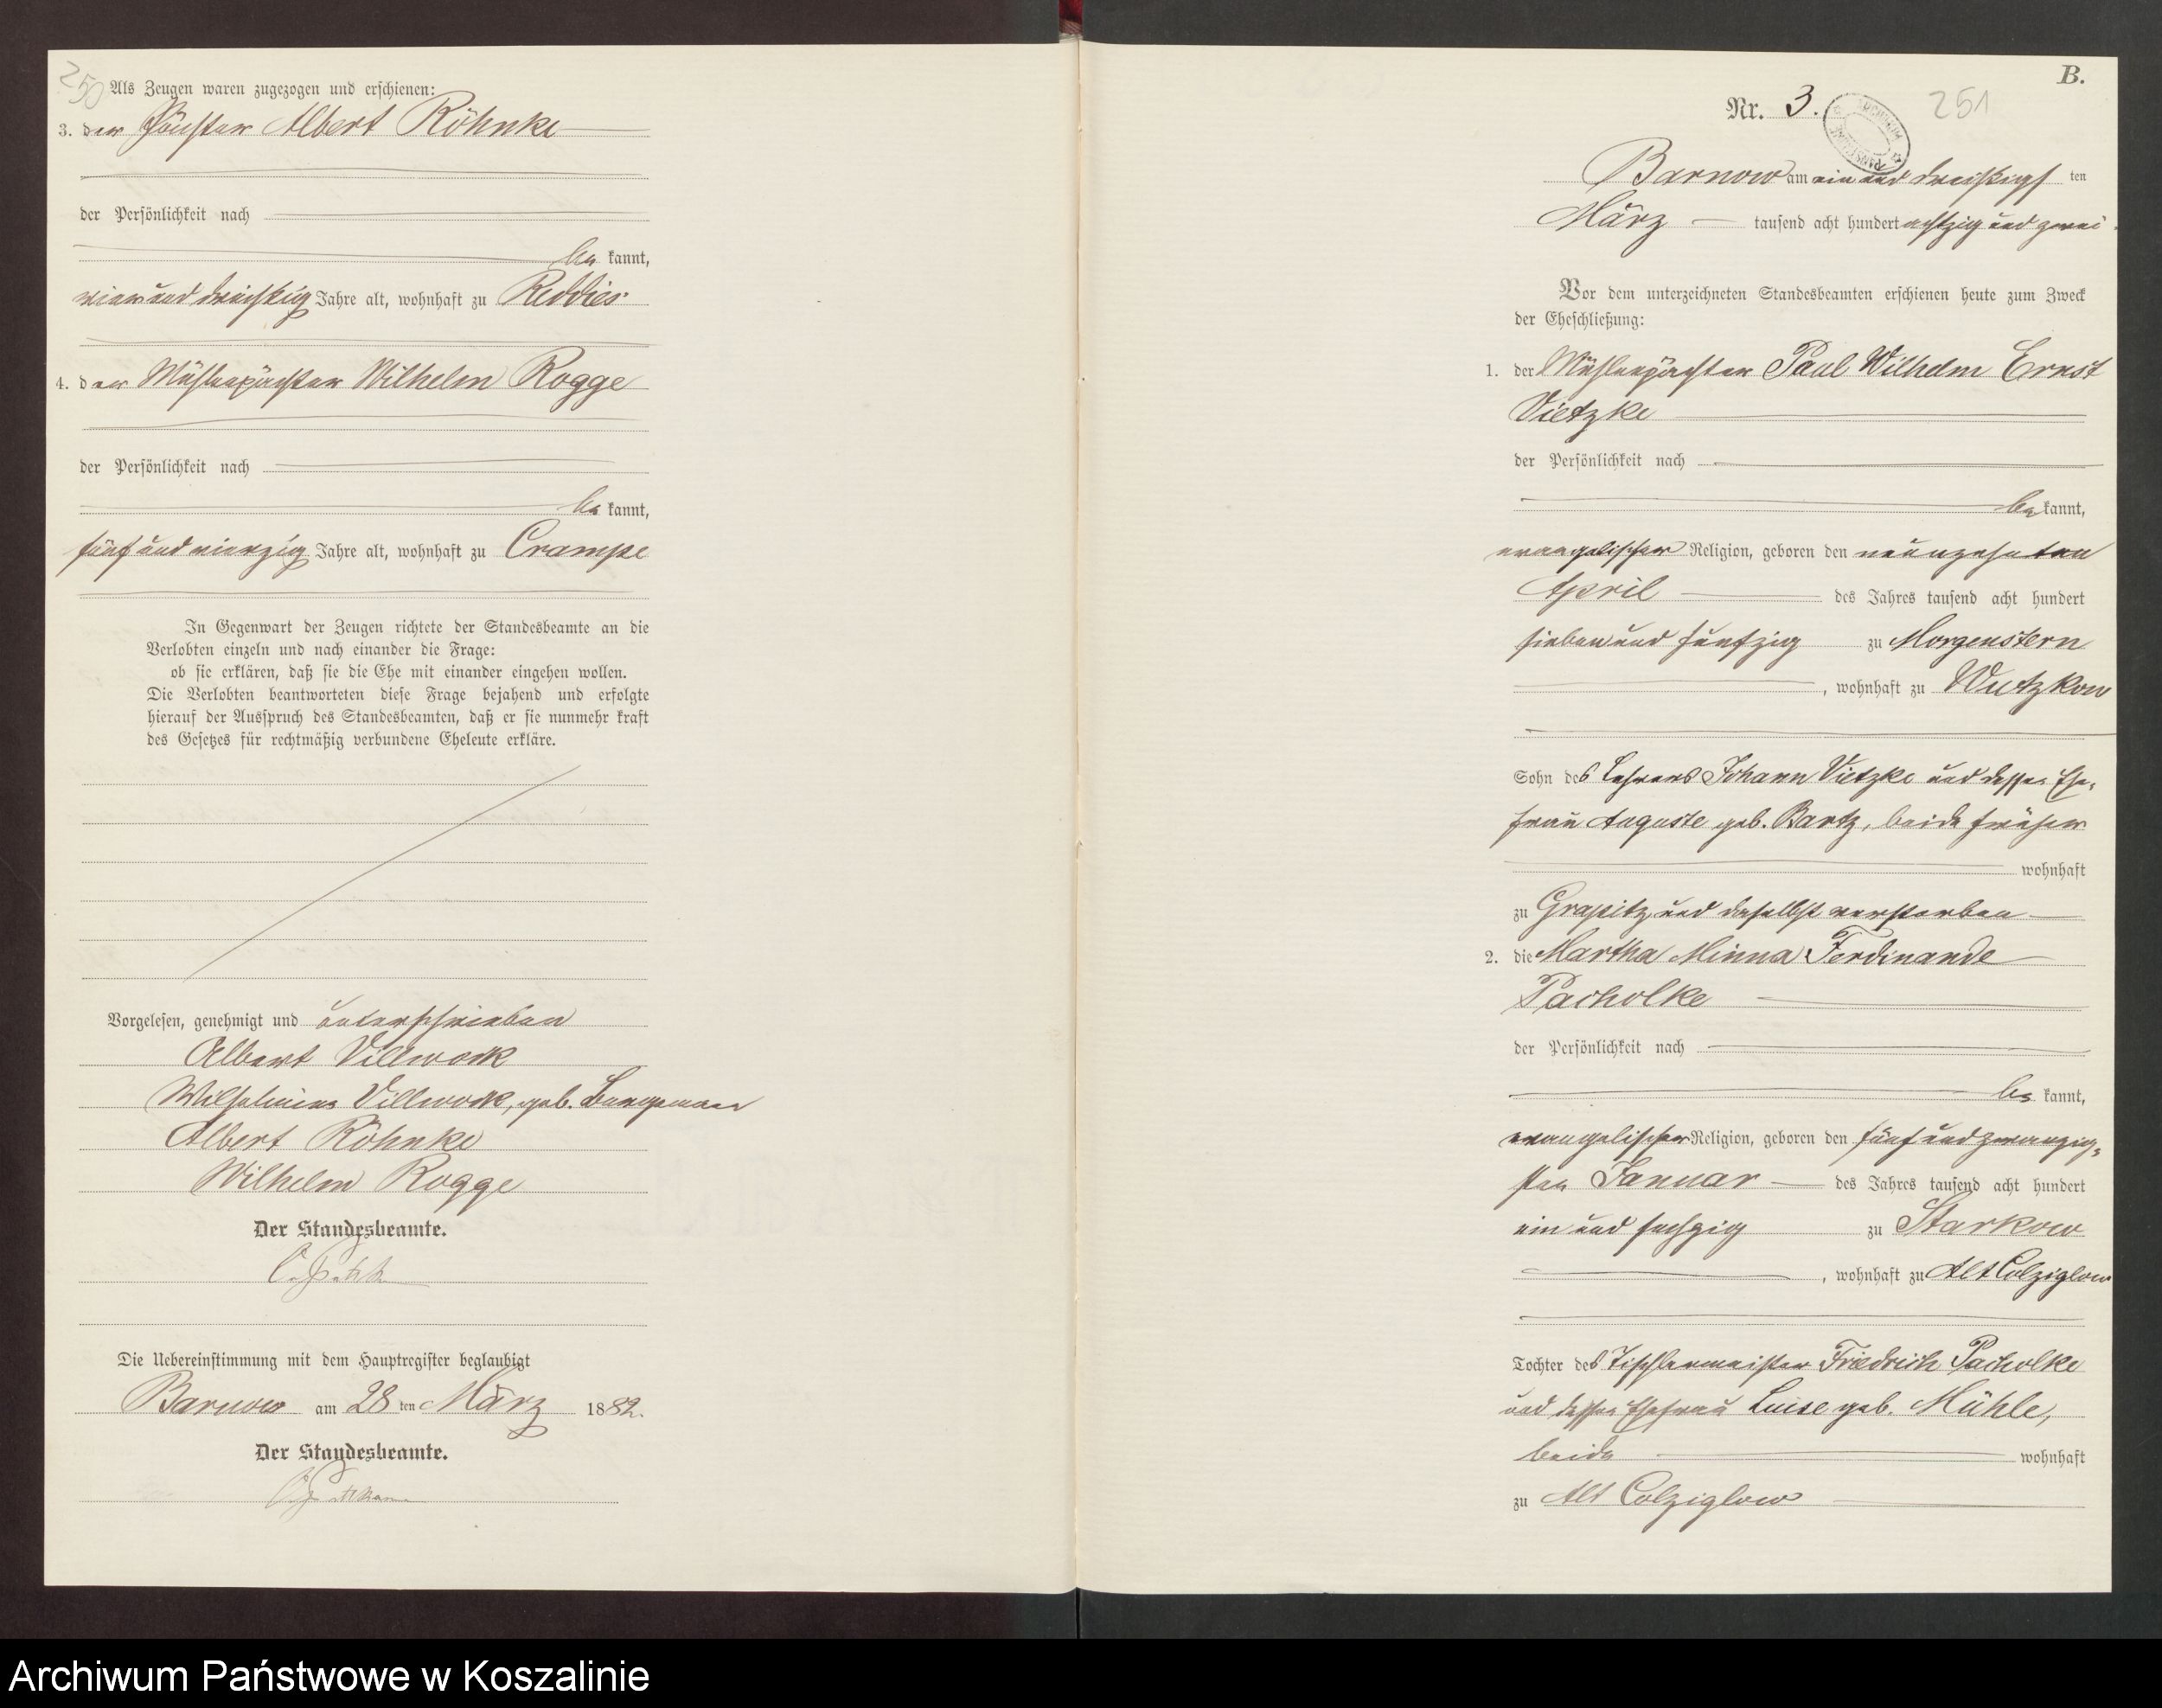 250
Als Zeugen waren zugezogen und erschienen:
3. der Förster Albert Röhnke
der Persönlichkeit nach
be kannt,
vier und dreißig Jahre alt, wohnhaft zu Reddies
4. der Mühlenpächter Wilhelm Rogge
der Persönlichkeit nach
be kannt,
fünf und vierzig Jahre alt, wohnhaft zu Crampe
In Gegenwart der Zeugen richtete der Standesbeamte an die
Verlobten einzeln und nach einander die Frage:
ob sie erklären, daß sie die Ehe mit einander eingehen wollen.
Die Verlobten beantworteten diese Frage bejahend und erfolgte
hierauf der Ausspruch des Standesbeamten, daß er sie nunmehr kraft
des Gesetzes für rechtmäßig verbundene Eheleute erkläre.
Vorgelesen, genehmigt und unterschrieben
Albert Villwock
Wilhelmine Villwock, geb.
Albert Röhnke
Wilhelm Rogge
Der Standesbeamte.
Die Uebereinstimmung mit dem Hauptregister beglaubigt
Barnow am 28 ten März 1882.
Der Standesbeamte.
B.
Nr. 3. 251
Barnow am ein und dreißigst ten
März tausend acht hundert achtzig und zwei
Vor dem unterzeichneten Standesbeamten erschienen heute zum Zweck
der Eheschließung:
1. der Mühlenpächter Paul Wilhelm Ernst
Vietzke
der Persönlichkeit nach
be kannt,
evangelischer Religion, geboren den neunzehnten
April des Jahres tausend acht hundert
sieben und fünfzig zu Morgenstern
, wohnhaft zu Wutzkow
Sohn des Lehrers Johann Vietzke und dessen Ehe-
frau Auguste geb. Bartz, beide früher
wohnhaft
zu Grapitz und daselbst verstorben
2. die Martha Minna Ferdinande
Pacholke
der Persönlichkeit nach
be kannt,
evangelischer Religion, geboren den fünf und zwanzig-
sten Januar des Jahres tausend acht hundert
ein und sechzig zu Starkow
, wohnhaft zu Alt Colziglow
Tochter des Tischlermeister Friedrich Pacholke
und dessen Ehefrau Luise geb. Mühle,
beide wohnhaft
zu Alt Colziglow
Archiwum Państwowe w Koszalinie